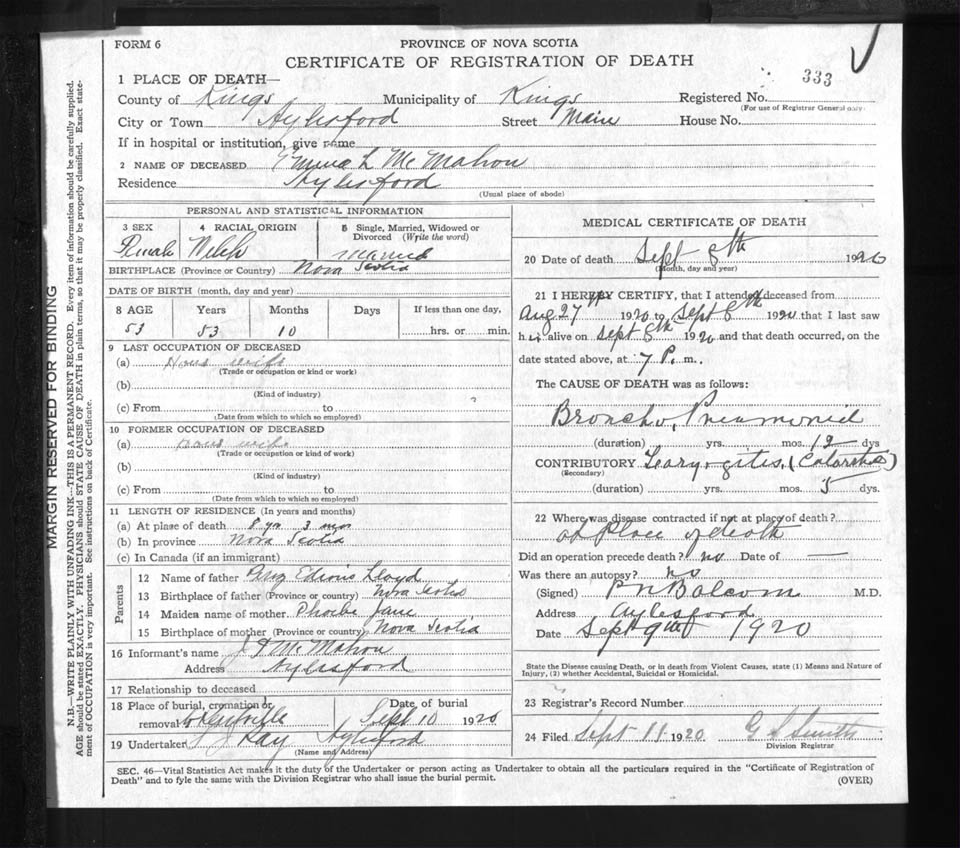 FORM 6
PROVINCE OF NOVA SCOTIA
CERTIFICATE OF REGISTRATION OF DEATH
333
1 PLACE OF DEATH—
County of Kings Municipality of Kings Registered No.
(For use of Registrar General only)
City or Town Aylesford Street Main House No.
If in hospital or institution, give name
2 NAME OF DECEASED Emma L McMahon
Residence Aylesford
(Usual place of abode)
PERSONAL AND STATISTICAL INFORMATION
3 SEX 4 RACIAL ORIGIN 5 Single, Married, Widowed or Divorced (Write the word)
Female Welch Married
BIRTHPLACE (Province or Country) Nova Scotia
DATE OF BIRTH (month, day and year)
8 AGE Years Months Days If less than one day,
53 53 10 hrs. or min.
9 LAST OCCUPATION OF DECEASED
(a) House wife
(Trade or occupation or kind or work)
(b)
(Kind of industry)
(c) From to
(Date from which to which so employed)
10 FORMER OCCUPATION OF DECEASED
(a) House wife
(Trade or occupation or kind of work)
(b)
(Kind of industry)
(c) From to
(Date from which to which so employed)
11 LENGTH OF RESIDENCE (In years and months)
(a) At place of death 8 yr 3 mos
(b) In province Nova Scotia
(c) In Canada (if an immigrant)
Parents
12 Name of father Lloyd
13 Birthplace of father (Province or country) Nova Scotia
14 Maiden name of mother Phoebe Jane
15 Birthplace of mother (Province or country) Nova Scotia
16 Informant's name McMahon
Address Aylesford
17 Relationship to deceased
18 Place of burial, cremation or removal Date of burial
Sept 10 1920
19 Undertaker Ray Aylesford
(Name and Address)
MEDICAL CERTIFICATE OF DEATH
20 Date of death Sept 8th 1920
(Month, day and year)
21 I HEREBY CERTIFY, that I attended deceased from
Aug 27th 1920 to Sept 8th 1920 that I last saw
h er alive on Sept 8th 1920 and that death occurred, on the
date stated above, at 7 P. m.
The CAUSE OF DEATH was as follows:
Broncho, Pneumonia
(duration) yrs. mos. 12 dys
CONTRIBUTORY Leary,gites, (Catarrhal)
(Secondary)
(duration) yrs. mos. 5 dys.
22 Where was disease contracted if not at place of death?
at Place of death
Did an operation precede death? no Date of —
Was there an autopsy? no
(Signed) P N Balcom M.D.
Address Aylesford
Date Sept 9th 1920
State the Disease causing Death, or in death from Violent Causes, state (1) Means and Nature of
Injury, (2) whether Accidental, Suicidal or Homicidal.
23 Registrar's Record Number
24 Filed Sept 11 1920 G S Smith
Division Registrar
SEC. 46—Vital Statistics Act makes it the duty of the Undertaker or person acting as Undertaker to obtain all the particulars required in the "Certificate of Registration of
Death" and to fyle the same with the Division Registrar who shall issue the burial permit. (OVER)
MARGIN RESERVED FOR BINDING
N.B.—WRITE PLAINLY WITH UNFADING INK—THIS IS A PERMANENT RECORD. Every item of information should be carefully supplied.
AGE should be stated EXACTLY. PHYSICIANS should STATE CAUSE OF DEATH in plain terms, so that it may be properly classified. Exact state-
ment of OCCUPATION is very important. See instructions on back of Certificate.